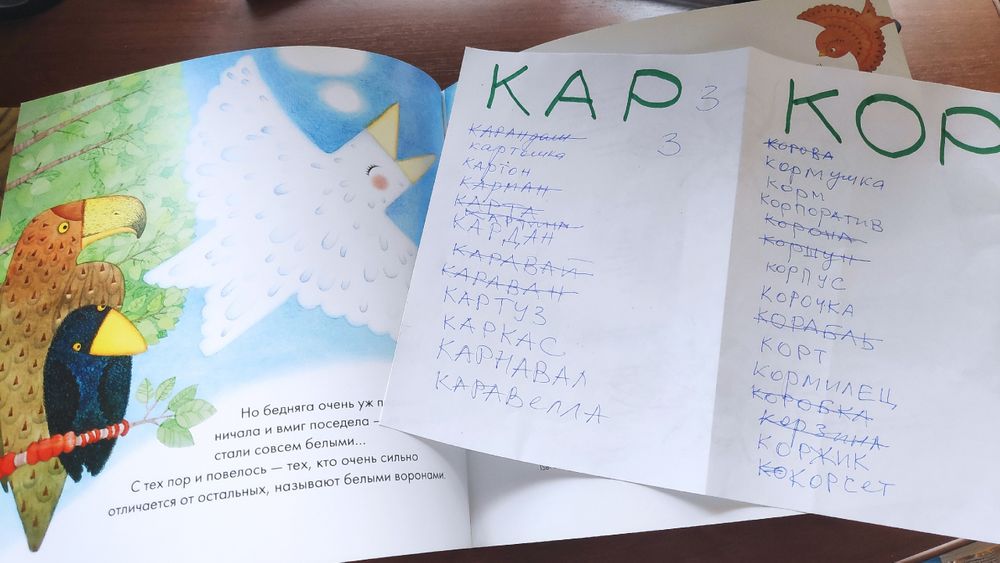 Но бедняга очень уж п
ничала и вмиг поседела –
стали совсем белыми...
С тех пор и повелось — тех, кто очень сильно
отличается от остальных, называют белыми воронами.
КАР 3
3
КАРАНдаш
картошка
КАРТОН
КАРМАН
КАРТА
КАРТИНА
КАРДАН
КАРАВАЙ
КАРАВАН
КАРТУЗ
КАРКАС
КАРНАВАЛ
КАРАВЕЛЛА
КОР
КОРОВА
КОРМУШКА
КОРМ
КОРПОРАТИВ
КОРОНА
КОРШУН
КОРПУС
КОРОЧКА
КОРАБЛЬ
КОРТ
КОРМИЛЕЦ
КОРОБКА
КОРЗИНА
КОРЖИК
КОКОРСЕТ